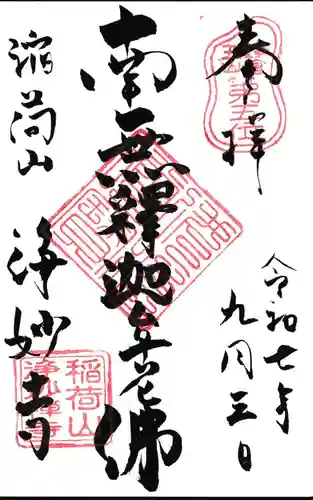 奉拝
令和七年
九月三日
南無釋迦牟尼佛
稲荷山
浄妙寺
稲荷山